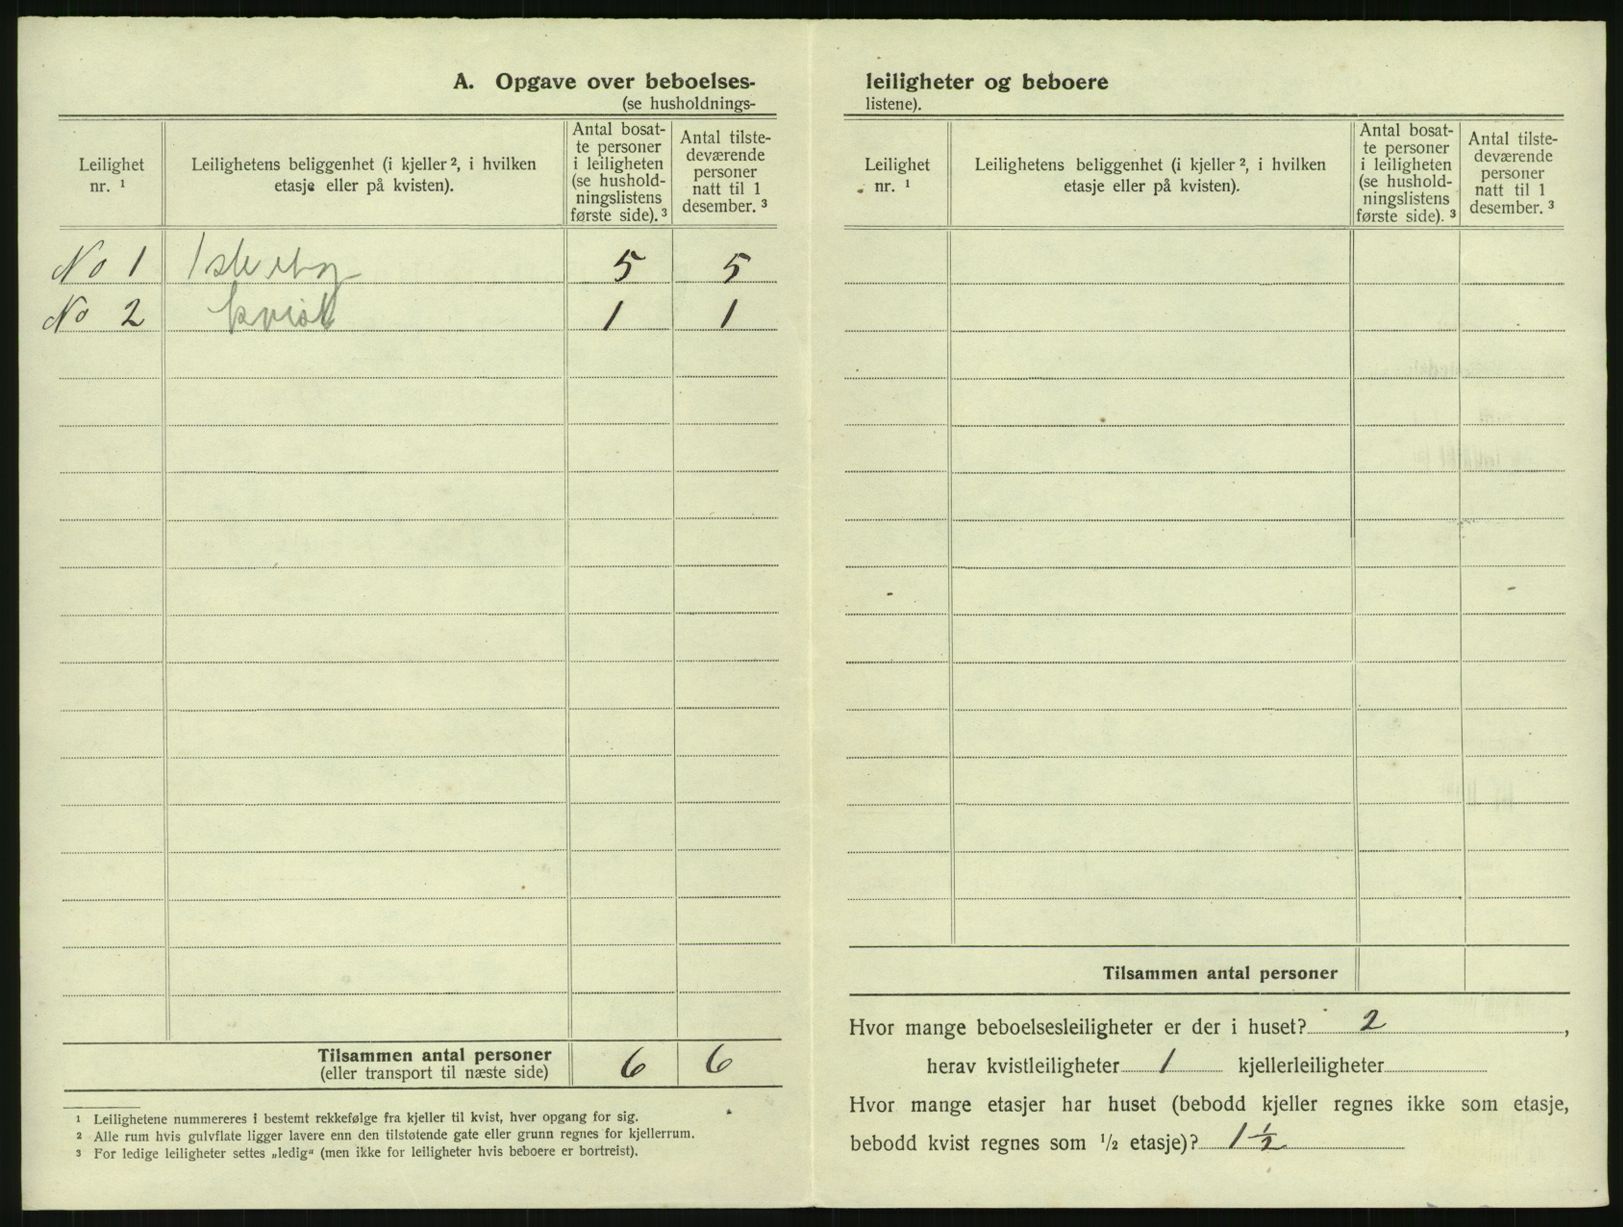 A. Opgave over beboelses-
(se husholdnings-
Leilighet
nr. ¹
Leilighetens beliggenhet (i kjeller ², i hvilken
etasje eller på kvisten).
Antal bosat-
te personer
i leiligheten
(se hushold-
ningslistens
første side). ³
Antal tilste-
deværende
personer
natt til 1
desember. ³
No 1 1ste etg 5 5
No 2 kvist 1 1
Tilsammen antal personer 6 6
(eller transport til næste side)
¹ Leilighetene nummereres i bestemt rekkefølge fra kjeller til kvist, hver opgang for sig.
² Alle rum hvis gulvflate ligger lavere enn den tilstøtende gate eller grunn regnes for kjellerrum.
³ For ledige leiligheter settes „ledig“ (men ikke for leiligheter hvis beboere er bortreist).
leiligheter og beboere
listene).
Leilighet
nr. ¹
Leilighetens beliggenhet (i kjeller ², i hvilken
etasje eller på kvisten).
Antal bosat-
te personer
i leiligheten
(se hushold-
ningslistens
første side). ³
Antal tilste-
deværende
personer
natt til 1
desember. ³
Tilsammen antal personer
Hvor mange beboelsesleiligheter er der i huset? 2,
herav kvistleiligheter 1 kjellerleiligheter
Hvor mange etasjer har huset (bebodd kjeller regnes ikke som etasje,
bebodd kvist regnes som ½ etasje)? 1 ½